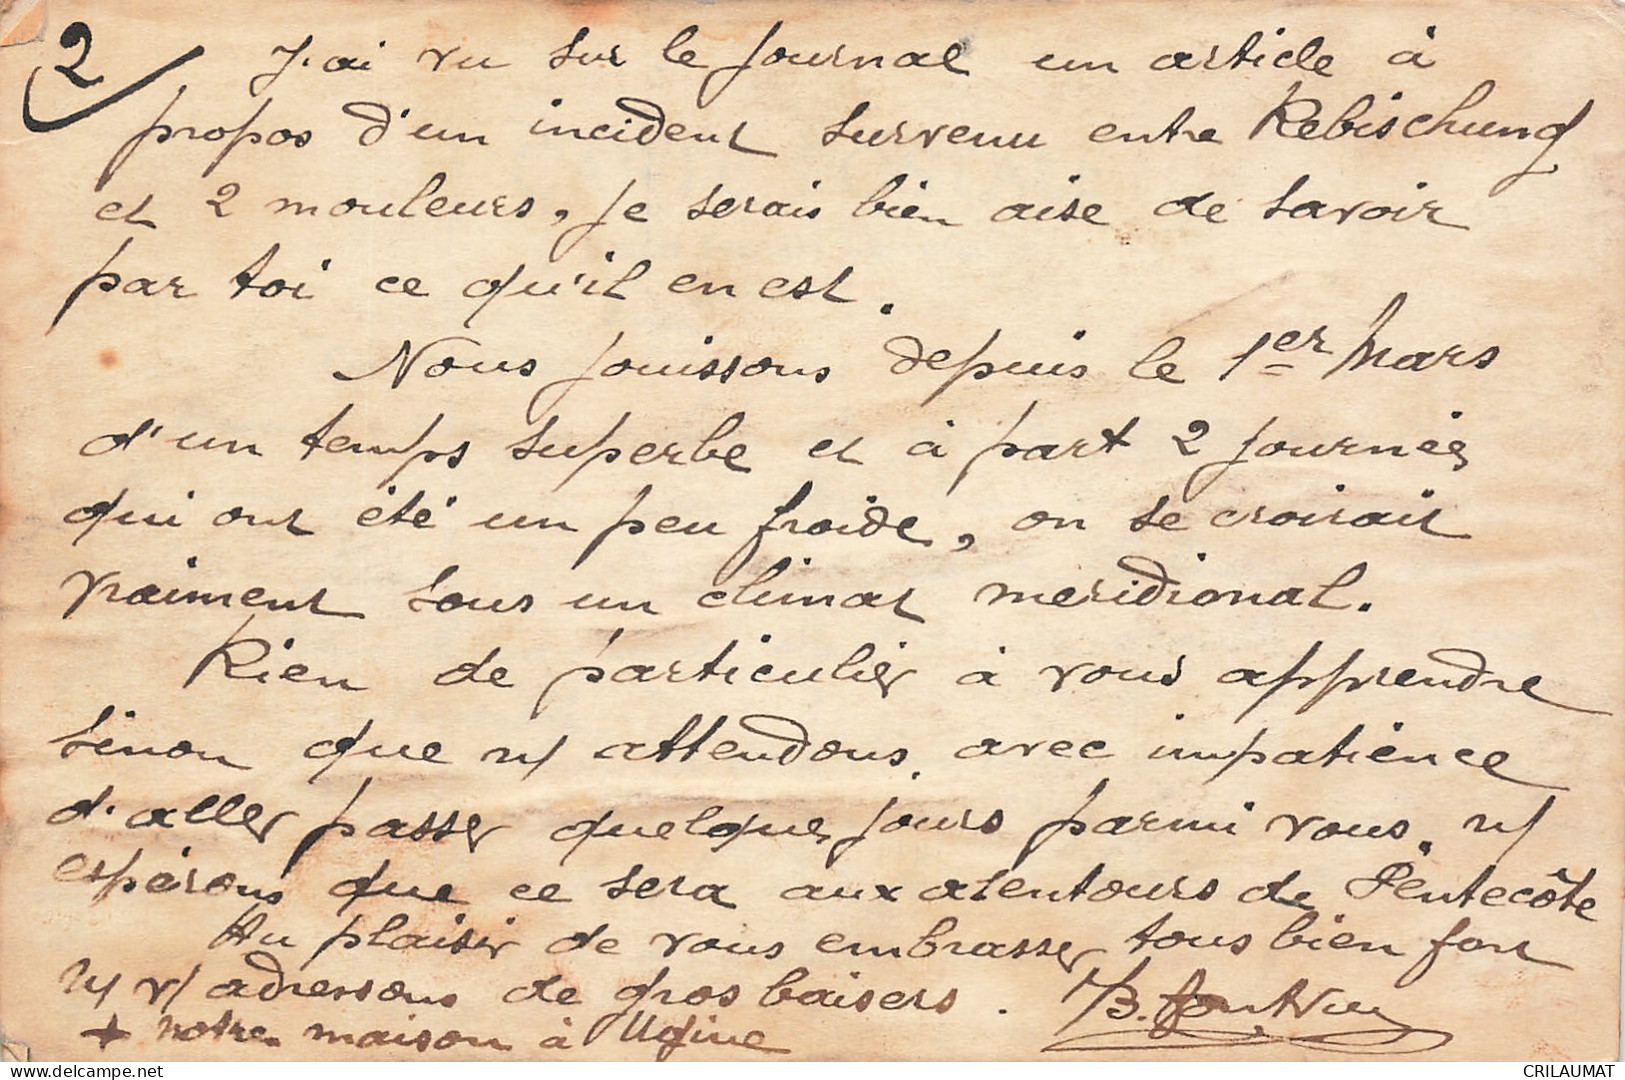 2/ J'ai vu sur le journal un article à
propos d'un incident survenu entre Rebischung
et 2 mouleurs, je serais bien aise de savoir
par toi ce qu'il en est.
Nous jouissons depuis le 1er Mars
d'un temps superbe et à part 2 journées
qui ont été un peu froide, on se croirait
vraiment sous un climat meridional.
Rien de particulier à vous apprendre
sinon que n/ attendons avec impatience
d'aller passer quelques jours parmi vous. n/
espérons que ce sera aux alentours de Pentecôte
Au plaisir de vous embrasser tous bien fort
N/ v/ adressons de gros baisers.
+ notre maison à Ugine
CRILAUMAT